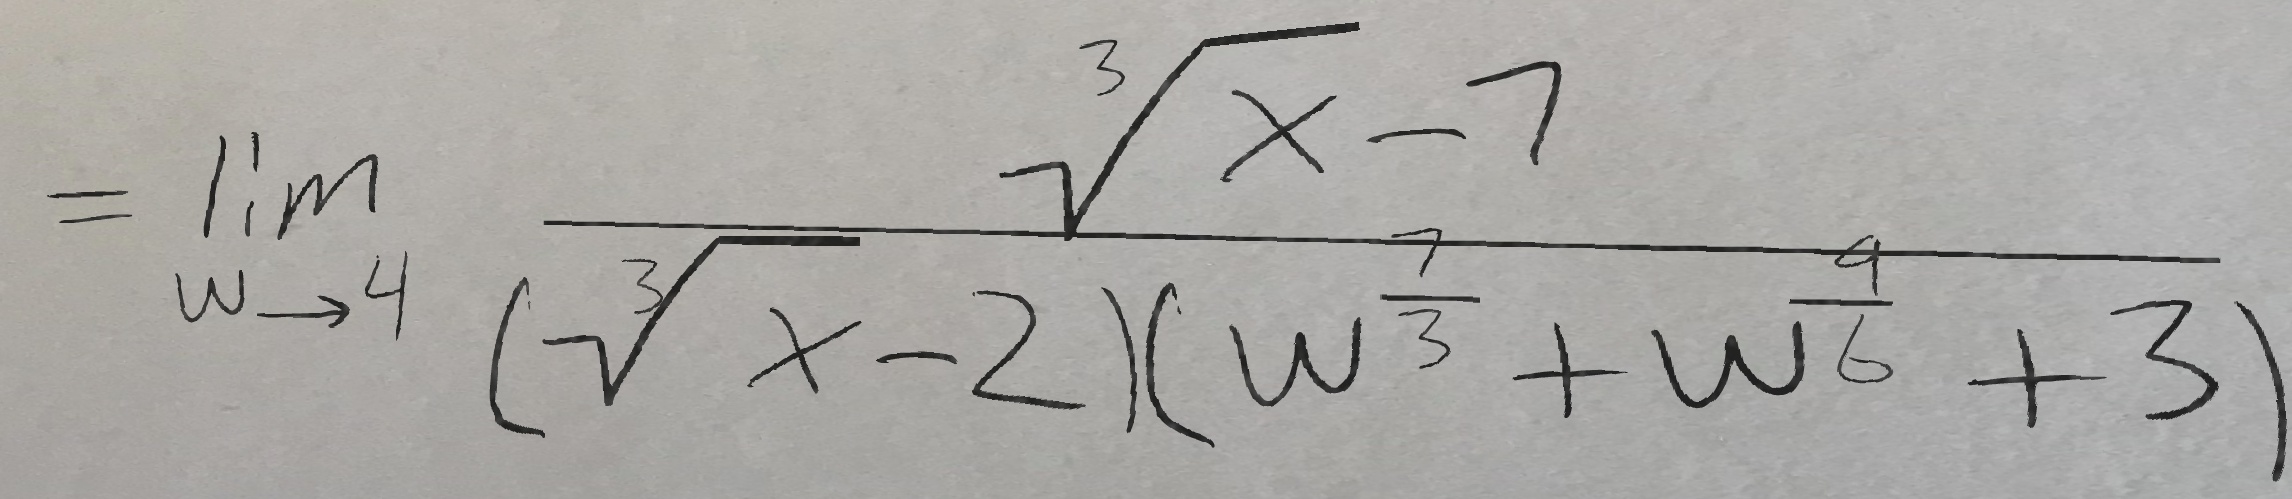 = \lim_{w \to 4} \frac{\sqrt[3]{x} - 7}{(\sqrt[3]{x} - 2)(w^{\frac{7}{3}} + w^{\frac{9}{6}} + 3)}